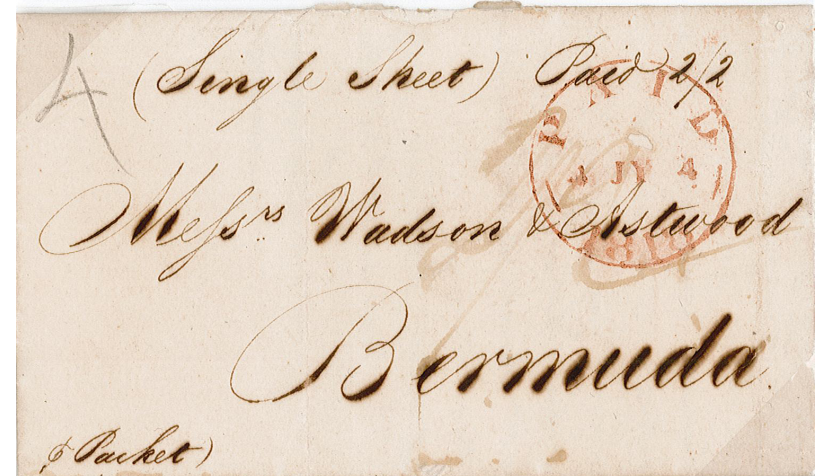 4
(Single Sheet) Paid 2/2
PAID
4 JY 4
Messrs Wadson & Astwood
Bermuda.
Packet)